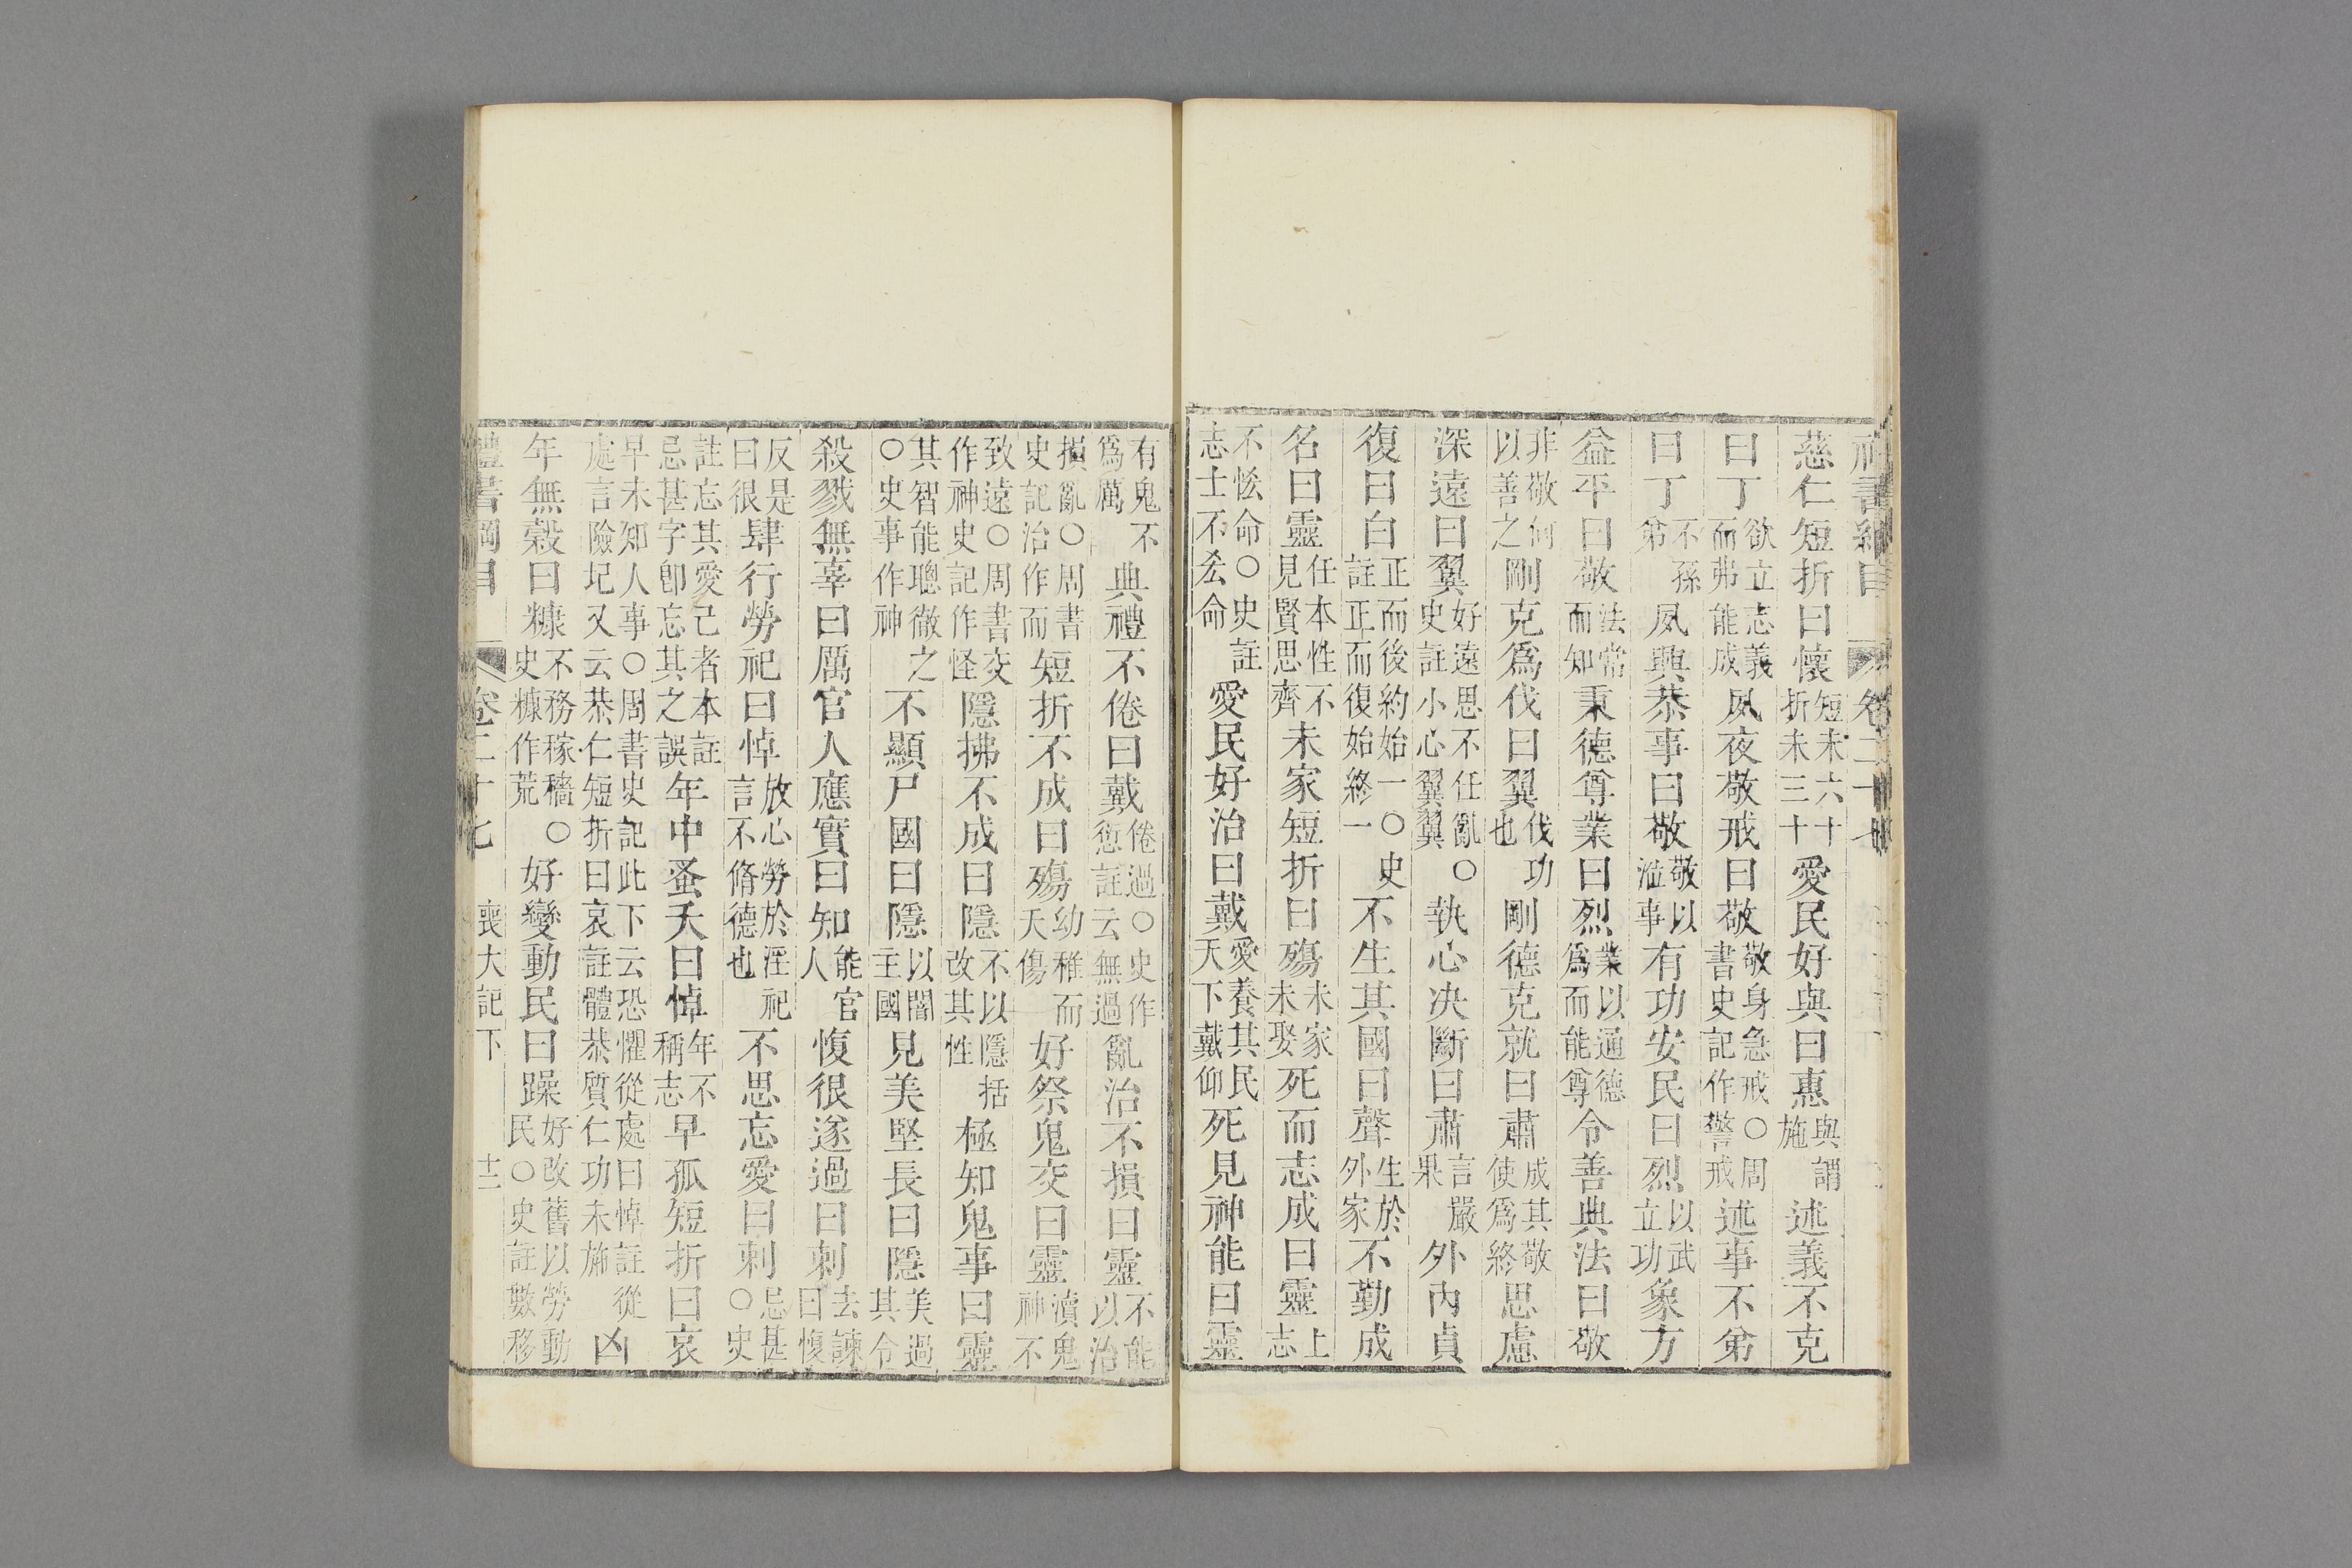 禮書綱目　卷二十七
慈仁短折曰懷短未六十折未三十愛民好與曰惠與謂施述義不克
曰丁欲立志義而弗能成夙夜敬戒曰敬敬身急戒○周書史記作警戒述事不弟
曰丁不孫弟夙興恭事曰敬敬以涖事有功安民曰烈以武立功象方
益平曰敬法常而知秉德尊業曰烈業以通德爲而能尊令善典法曰敬
非敬何以善之剛克爲伐曰翼伐功也剛德克就曰肅成其敬使爲終思慮
深遠曰翼好遠思不任亂○史註小心翼翼執心决斷曰肅言嚴果外內貞
復曰白正而後約始一○史註正而復始終一不生其國曰聲生於外家不勤成
名曰靈任本性不見賢思齊未家短折曰殤未家未娶死而志成曰靈上志
不怯命○史註志士不厺命愛民好治曰戴愛養其民天下戴仰死見神能曰靈
有鬼不爲厲典禮不倦曰戴倦過○史作愆註云無過亂治不損曰靈不能以治
損亂○周書史記治作而短折不成曰殤幼稚而夭傷好祭鬼交曰靈瀆鬼神不
致遠○周書交作神史記作怪隱拂不成曰隱不以隱括改其性極知鬼事曰靈
其智能聰徹之○史事作神不顯尸國曰隱以闇主國見美堅長曰隱美過其令
殺戮無辜曰厲官人應實曰知能官人愎很遂過曰刺去諫曰愎
反是曰很肆行勞祀曰悼放心勞於淫祀言不脩德也不思忘愛曰刺忌甚○史
註忘其愛己者本註忌甚字卽忘其之誤年中蚤夭曰悼年不稱志早孤短折曰哀
早未知人事○周書史記此下云恐懼從處曰悼註從處言險圮又云恭仁短折曰哀註體恭質仁功未施凶
年無穀曰糠不務稼穡○史糠作荒好變動民曰躁好改舊以勞動民○史註數移
禮書綱目　卷二十七　喪大記下　十二